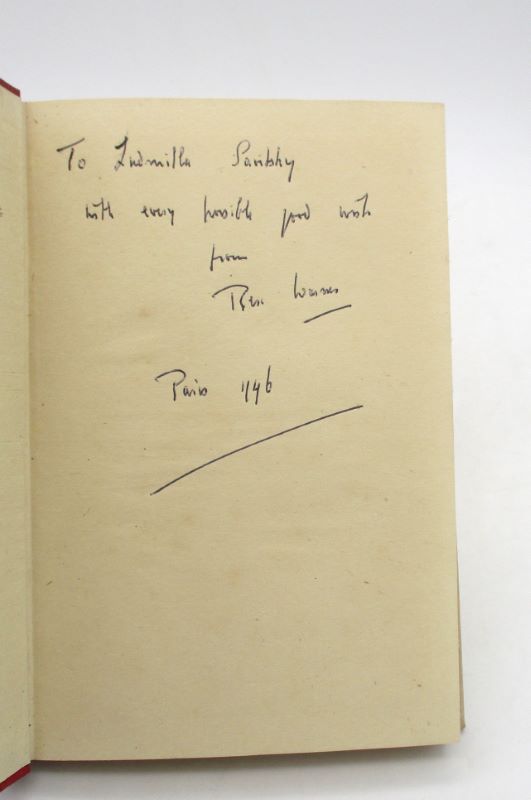 To Ludmilla Savitsky
with every possible good wish
from
Rex Warner
Paris 1946